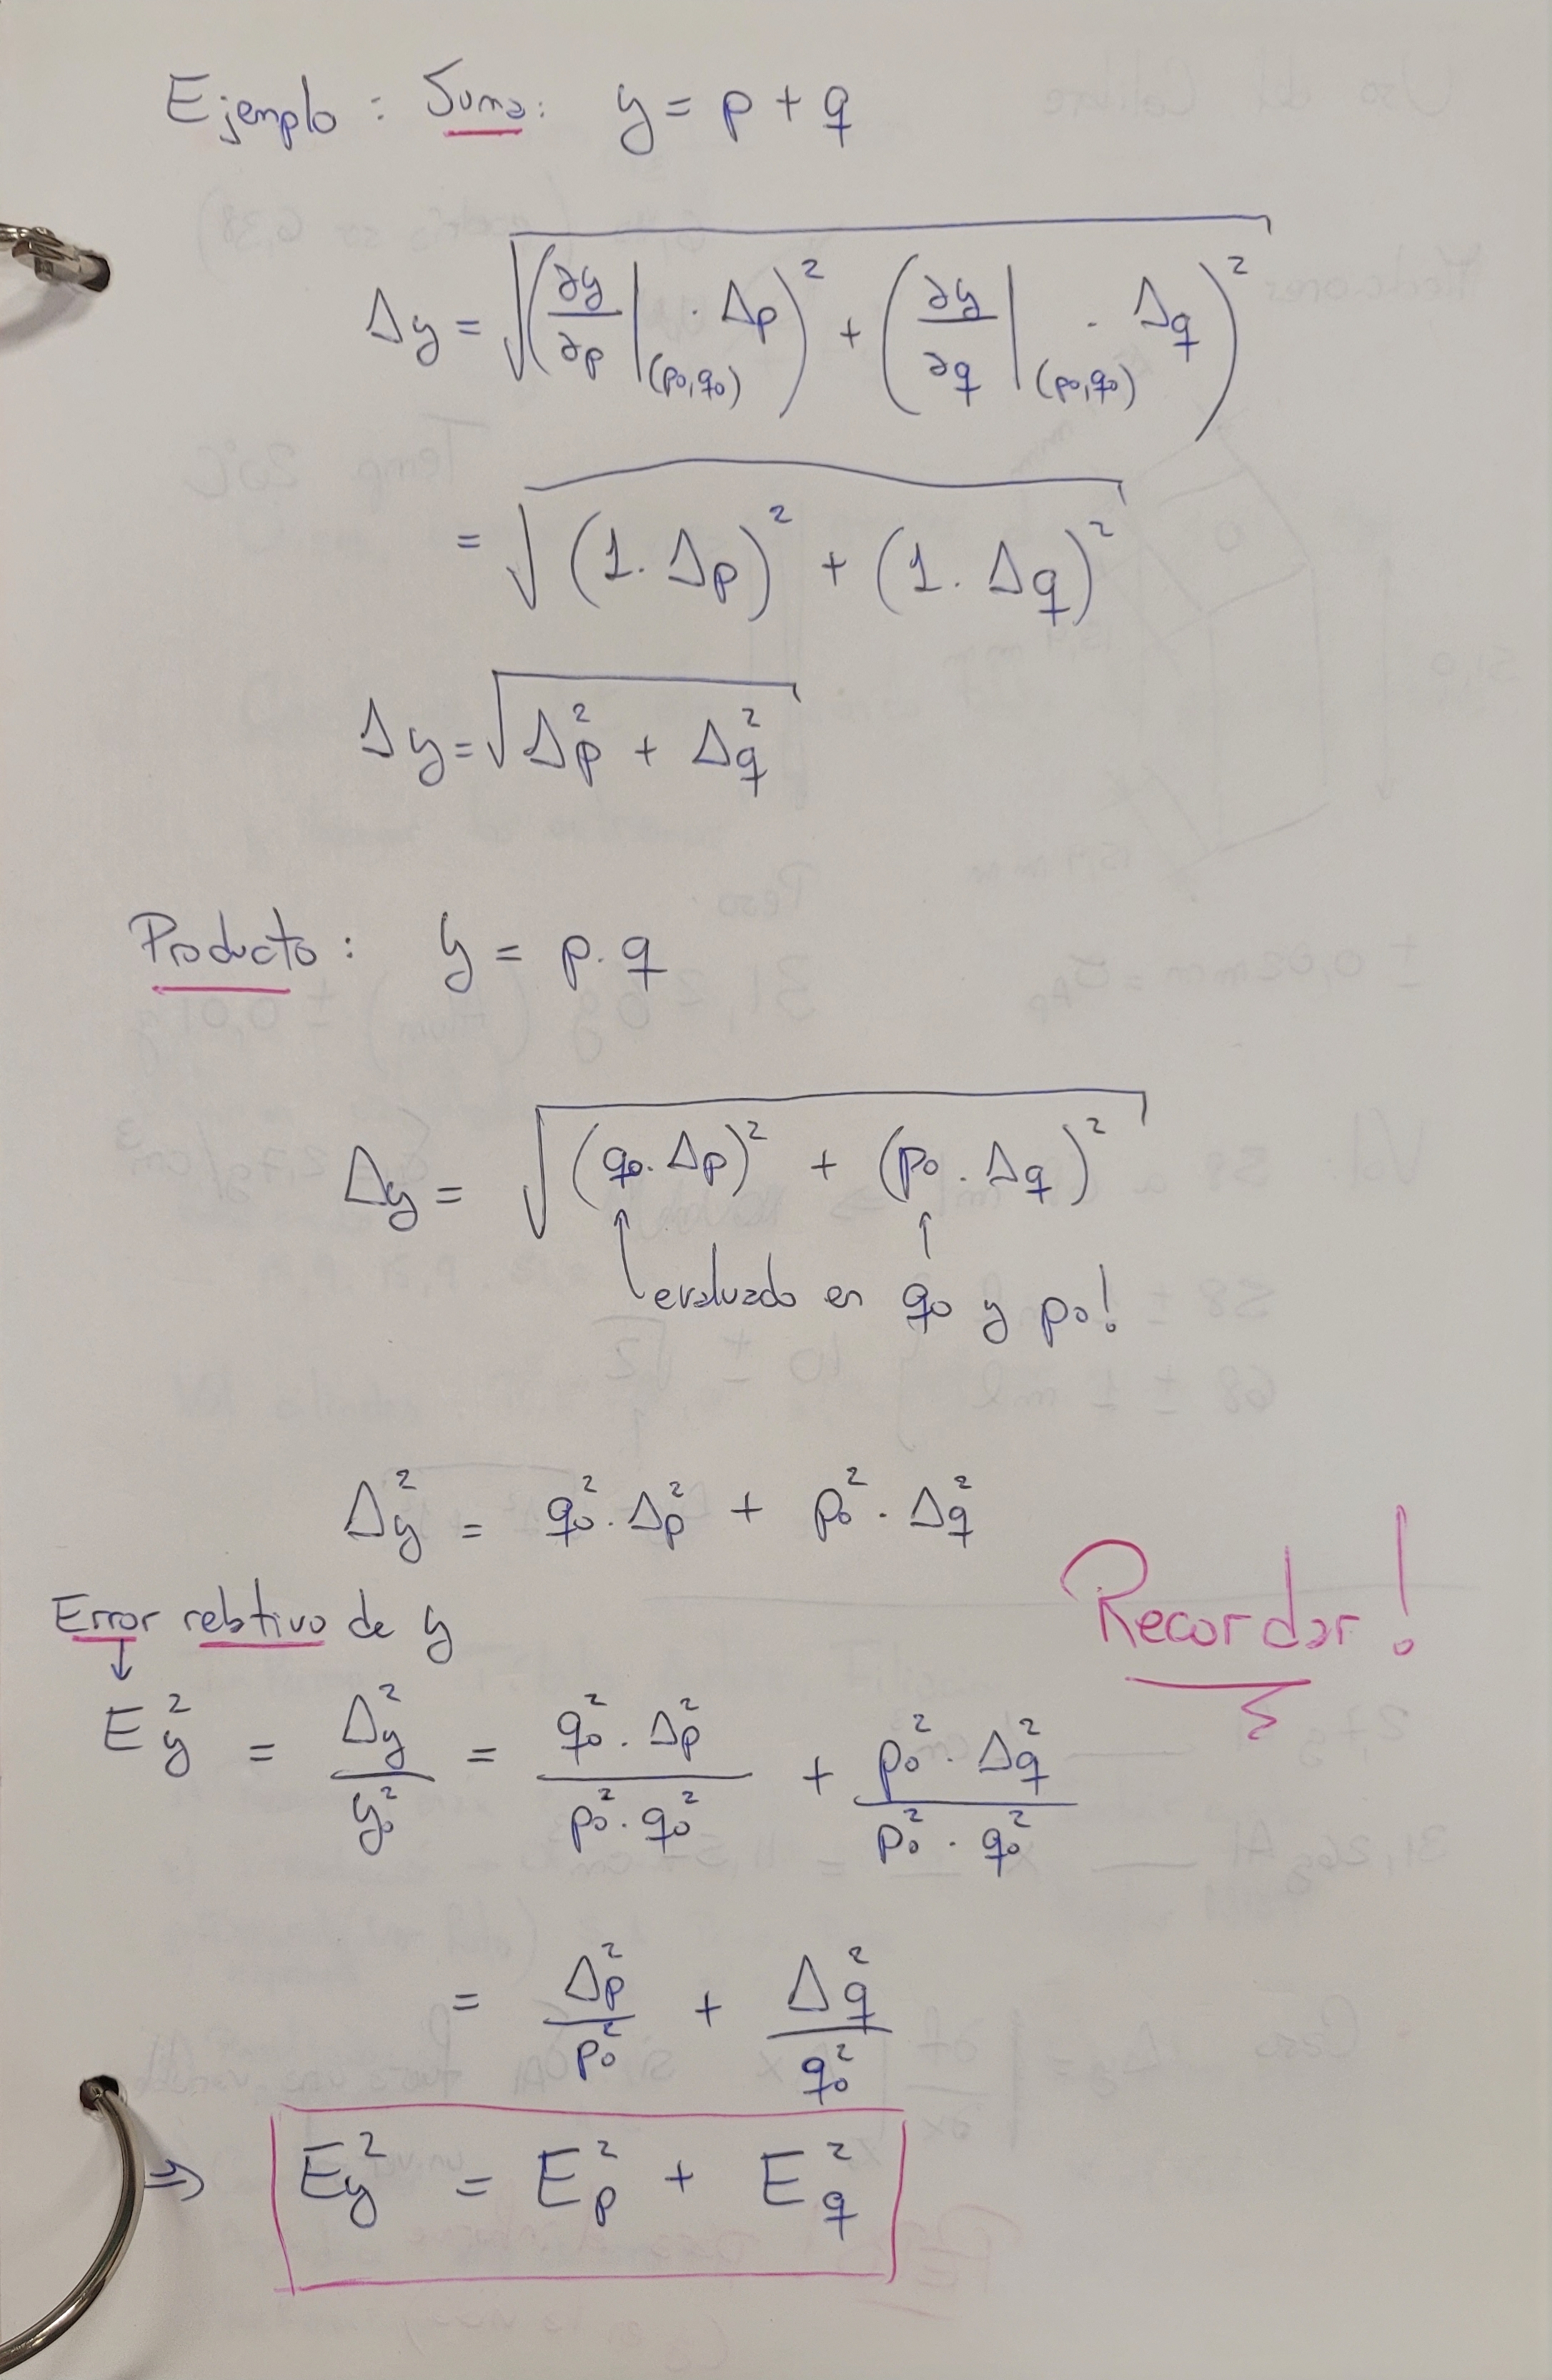 Ejemplo : Suma: y = p + q
Δy = √( (∂y/∂p |(p₀,q₀) · Δp)² + (∂y/∂q |(p₀,q₀) · Δq)² )
= √( (1. Δp)² + (1. Δq)² )
Δy = √( Δp² + Δq² )
Producto : y = p. q
Δy = √( (q₀. Δp)² + (p₀. Δq)² )
evaluado en q₀ y p₀!
Δy² = q₀². Δp² + p₀². Δq²
Recordar!
Error relativo de y
↓
Ey² = Δy²/y₀² = (q₀². Δp²)/(p₀². q₀²) + (p₀². Δq²)/(p₀². q₀²)
= Δp²/p₀² + Δq²/q₀²
⇒ Ey² = Ep² + Eq²